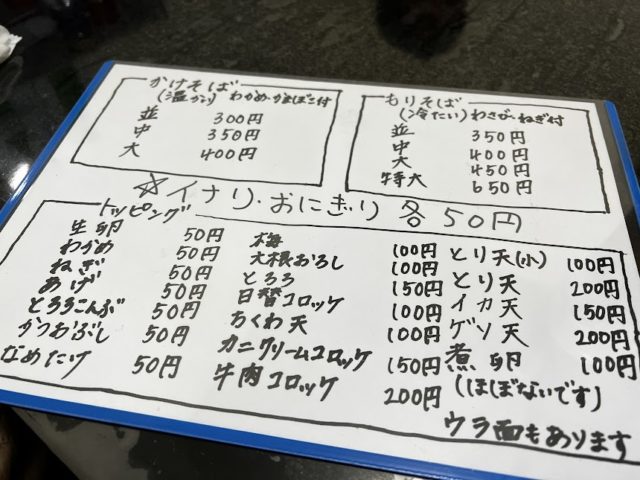 かけそば
(温かい) わかめ・かまぼこ付
並 300円
中 350円
大 400円
もりそば
(冷たい) わさび、ねぎ付
並 350円
中 400円
大 450円
特大 650円
☆イナリ・おにぎり 各50円
トッピング
生卵 50円
わかめ 50円
ねぎ 50円
あげ 50円
とろろこんぶ 50円
かつおぶし 50円
なめたけ 50円
梅 100円
大根おろし 100円
とろろ 150円
日替コロッケ 100円
ちくわ天 100円
カニクリームコロッケ 150円
牛肉コロッケ 200円
とり天(小) 100円
とり天 200円
イカ天 150円
ゲソ天 200円
煮卵 100円
(ほぼないです)
ウラ面もあります